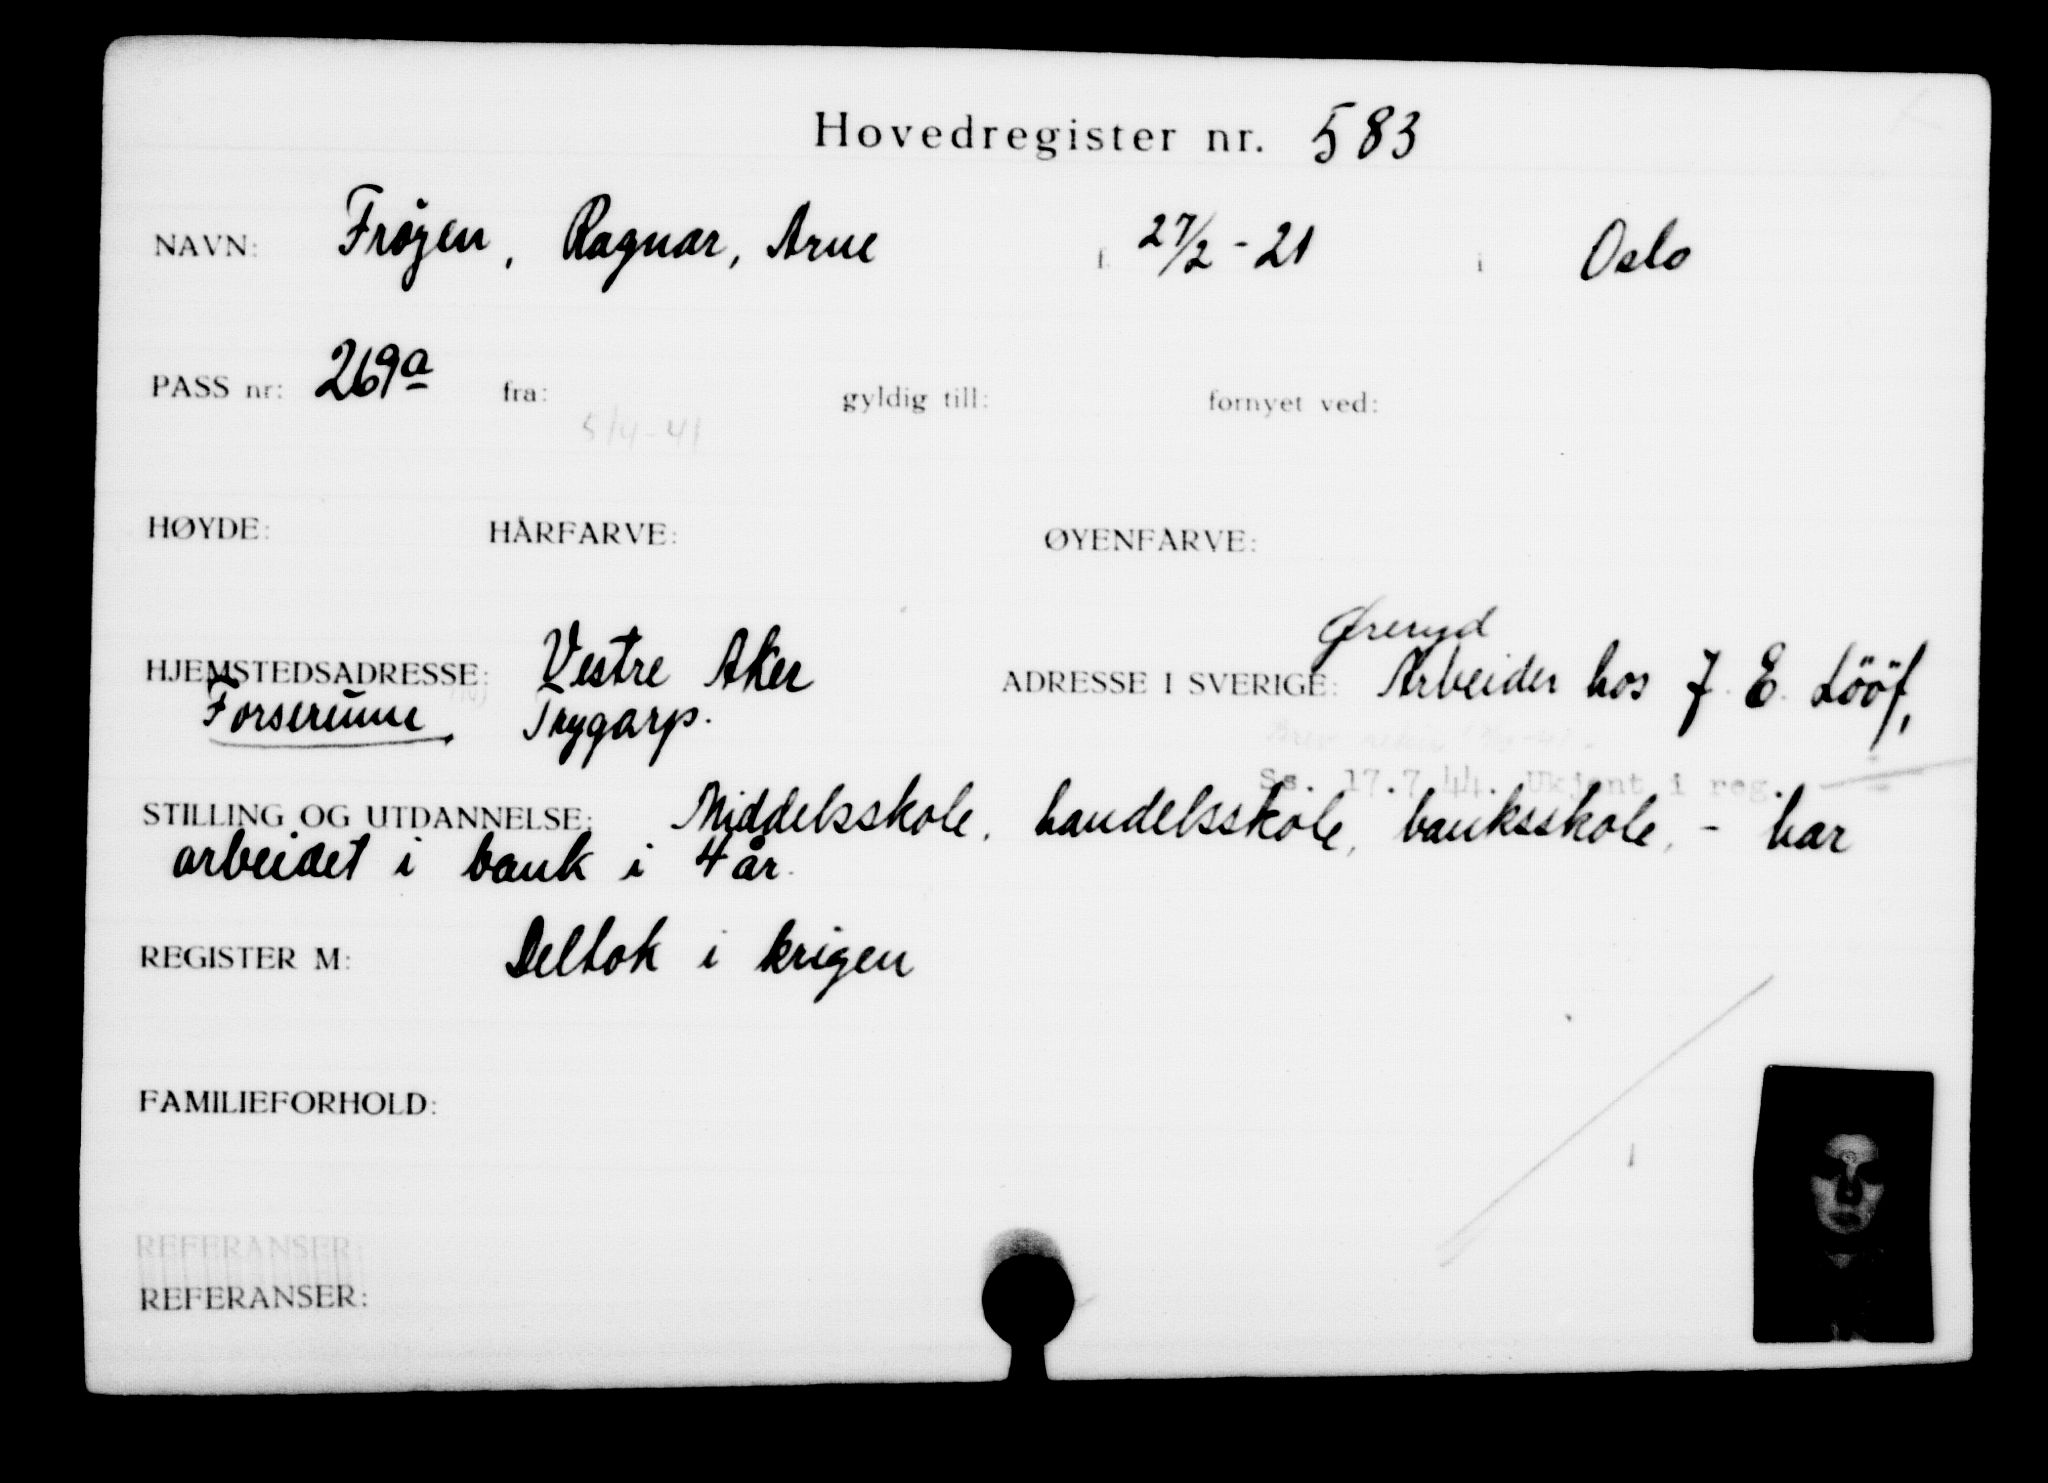 Hovedregister nr. 583
NAVN: Frøyen, Ragnar, Arne f. 27/2 - 21 i Oslo
PASS nr: 269a fra: gyldig till: fornyet ved:
5/4-41
HØYDE: HÅRFARVE: ØYENFARVE:
Øreryd
HJEMSTEDSADRESSE: Vestre Aker ADRESSE I SVERIGE: Arbeider hos J. E. Lööf,
Forserum. Trygarp.
Ss. 17.7.44. Ukjent i reg.
STILLING OG UTDANNELSE: Middelsskole, handelsskole, banksskole, - har
arbeidet i bank i 4 år.
REGISTER M: Deltok i krigen
FAMILIEFORHOLD:
REFERANSER:
REFERANSER: